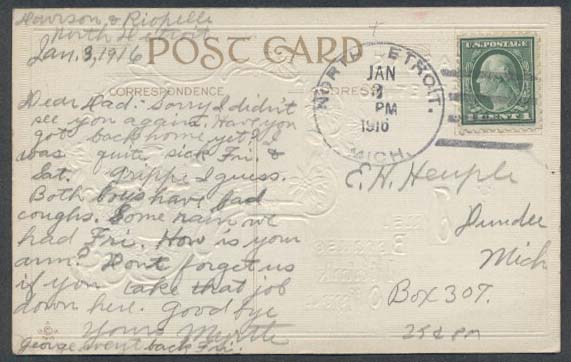 Howison & Riopelle
North Detroit
Jan. 3, 1916
POST CARD
CORRESPONDENCE
NORTH DETROIT.
JAN
3
PM
1916
MICH.
U.S. POSTAGE
1 CENT 1
Dear Dad:- Sorry I didn't
see you again. Have you
got back home yet? I
was quite sick Fri &
Sat. Grippe I guess.
Both boys have bad
coughs. Some rain we
had Fri. How is your
arm? Dont forget us
if you take that job
down here. Good bye
Yours Myrtle
George went back Fri.
E. H. Heuple
Dundee
Mich
Box 307.